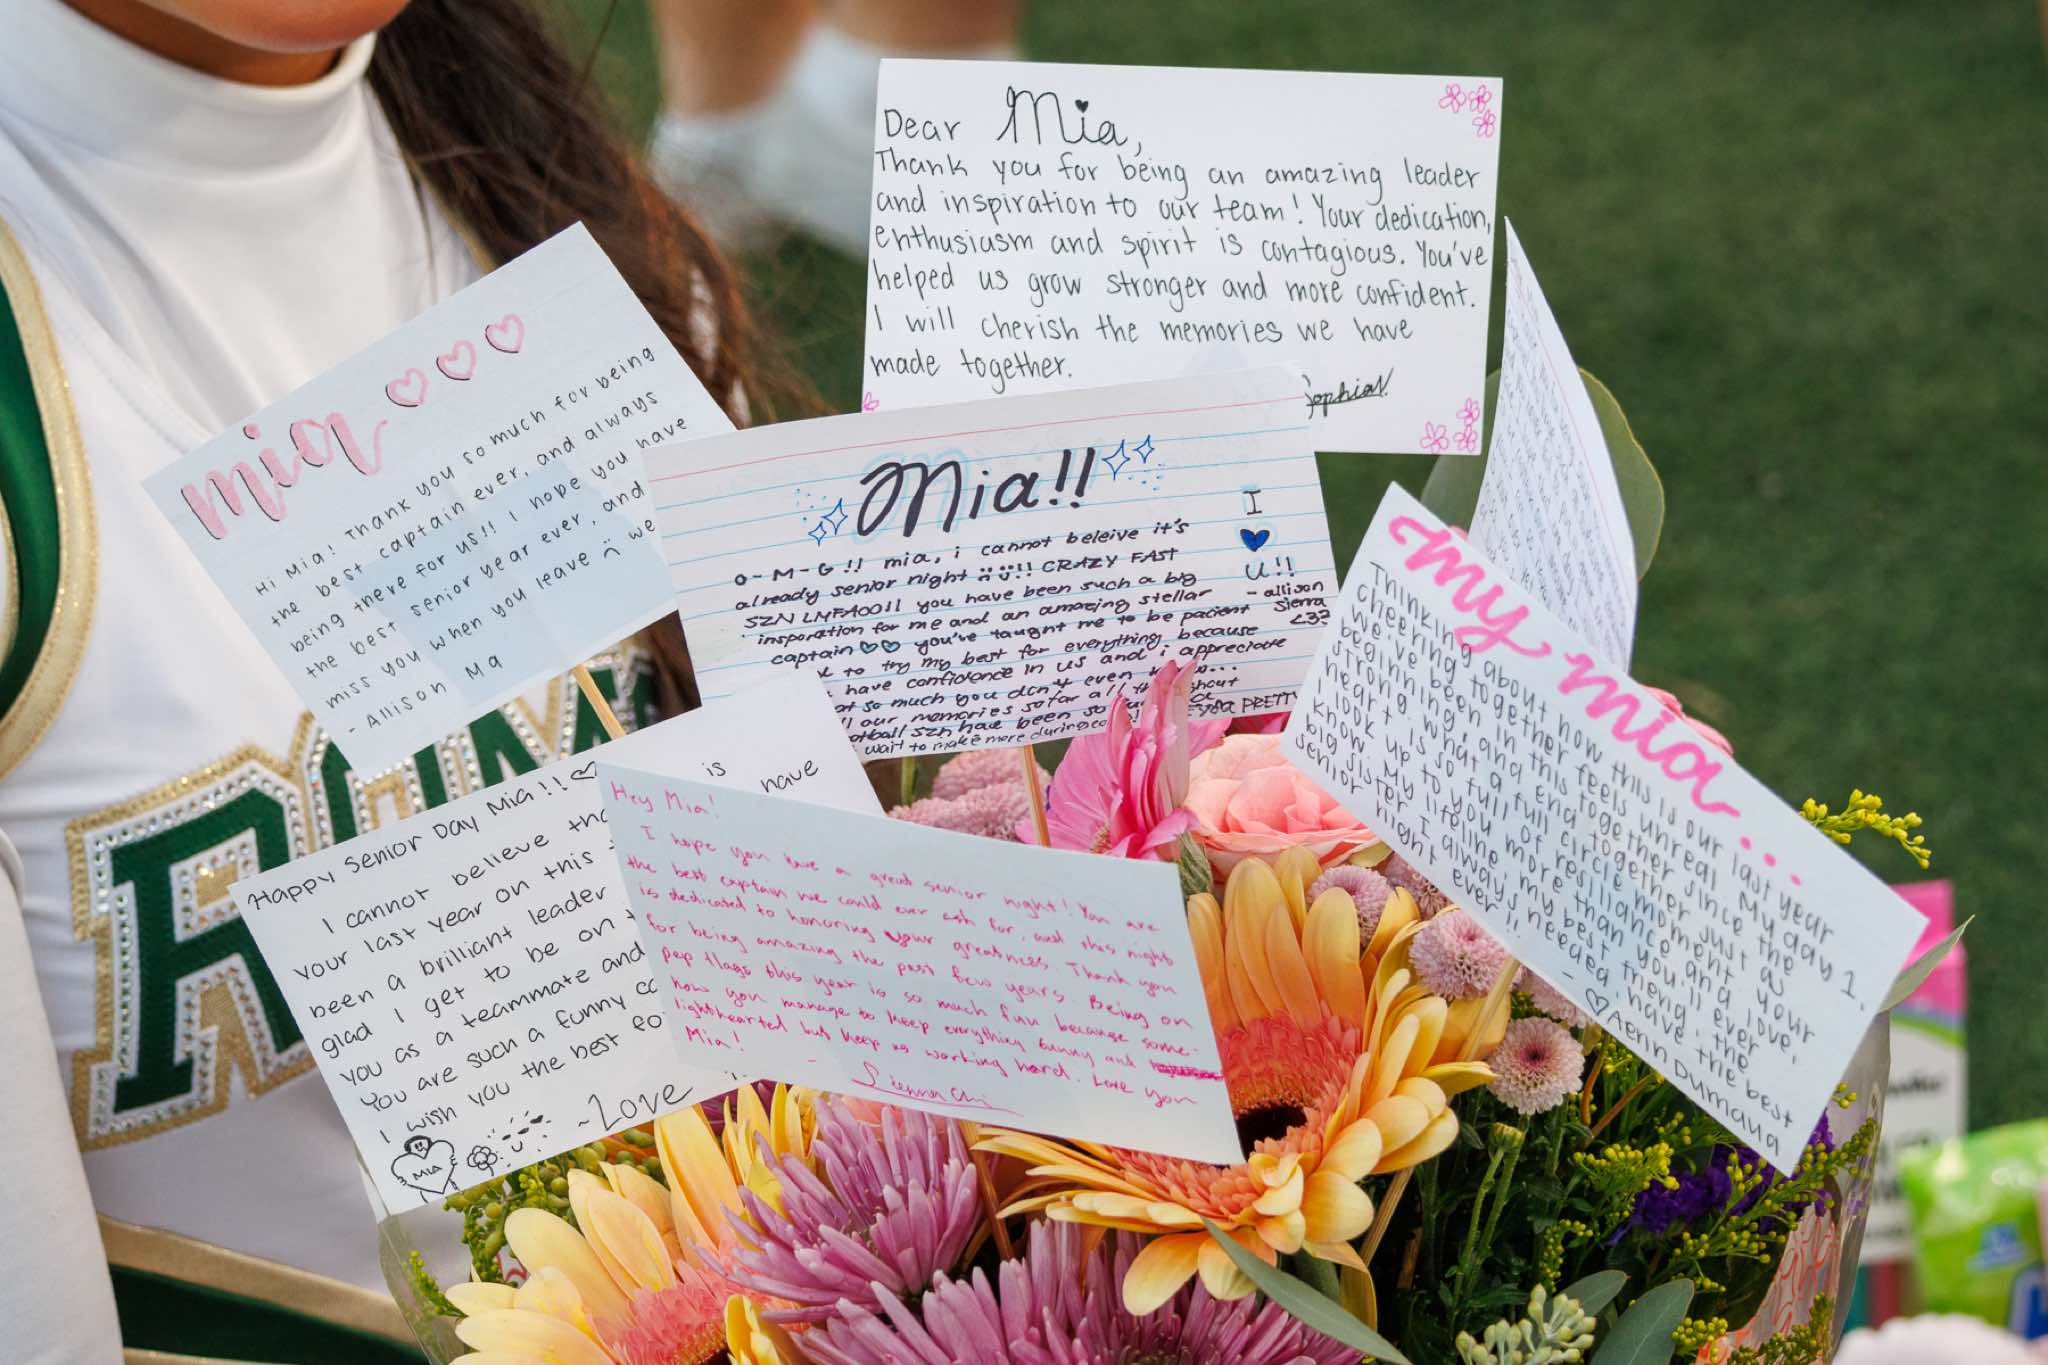 Dear Mia,
Thank you for being an amazing leader
and inspiration to our team! Your dedication,
enthusiasm and spirit is contagious. You've
helped us grow stronger and more confident.
I will cherish the memories we have
made together.
SophiaN.
mia
Hi Mia! Thank you so much for being
the best captain ever, and always
being there for us!! I hope you have
the best senior year ever, and
miss you when you leave :( we
- Allison Ma
Mia!!
O-M-G!! mia, i cannot beleive it's
already senior night !! CRAZY FAST
SZN LMFAOO!! you have been such a big
insporation for me and an amazing stellar
captain you've taught me to be pacient
to try my best for everything because
have confidence in us and i appreciate
so much you don't even
our memories so far all
szn have been so
wait to make more during
PRETTY
I
U!!
- allison
sierra
<3?
my mia...
Thinking about how this is our last year
cheering together feels unreal. My day 1,
we've been in this together since the
beginning, and end together just as
strong. What a full circle moment. Your
heart is so full of resilliance and love,
I look up to you more than you'll ever
know. My lifeline, my best friend, the
big sister I always needed, have the best
senior night ever!!
- ♡Aenn Dumaua
Happy Senior Day Mia!!♡
I cannot believe
is
your last year on this
have
been a brilliant leader
glad I get to be on
you as a teammate and
You are such a funny
I wish you the best
~Love
MIA
Hey Mia!
I hope you have a great senior night! You are
the best captain we could ever ask for, and this night
is dedicated to honoring your greatness. Thank you
for being amazing the past few years. Being on
pep flags this year is so much fun because some-
how you manage to keep everything funny and
lighthearted but keep us working hard. Love you
Mia!
- Sienna Chi
RAM